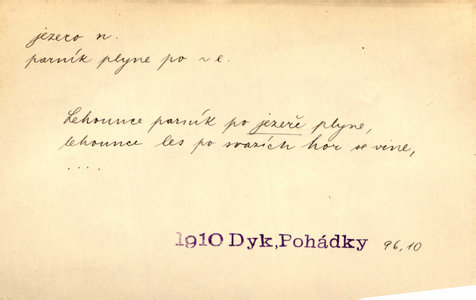 jezero n.
parník plyne po ~ e.
Lehounce parník po jezeře plyne,
lehounce les po svazích hor se vine,
....
1910 Dyk, Pohádky 96,10